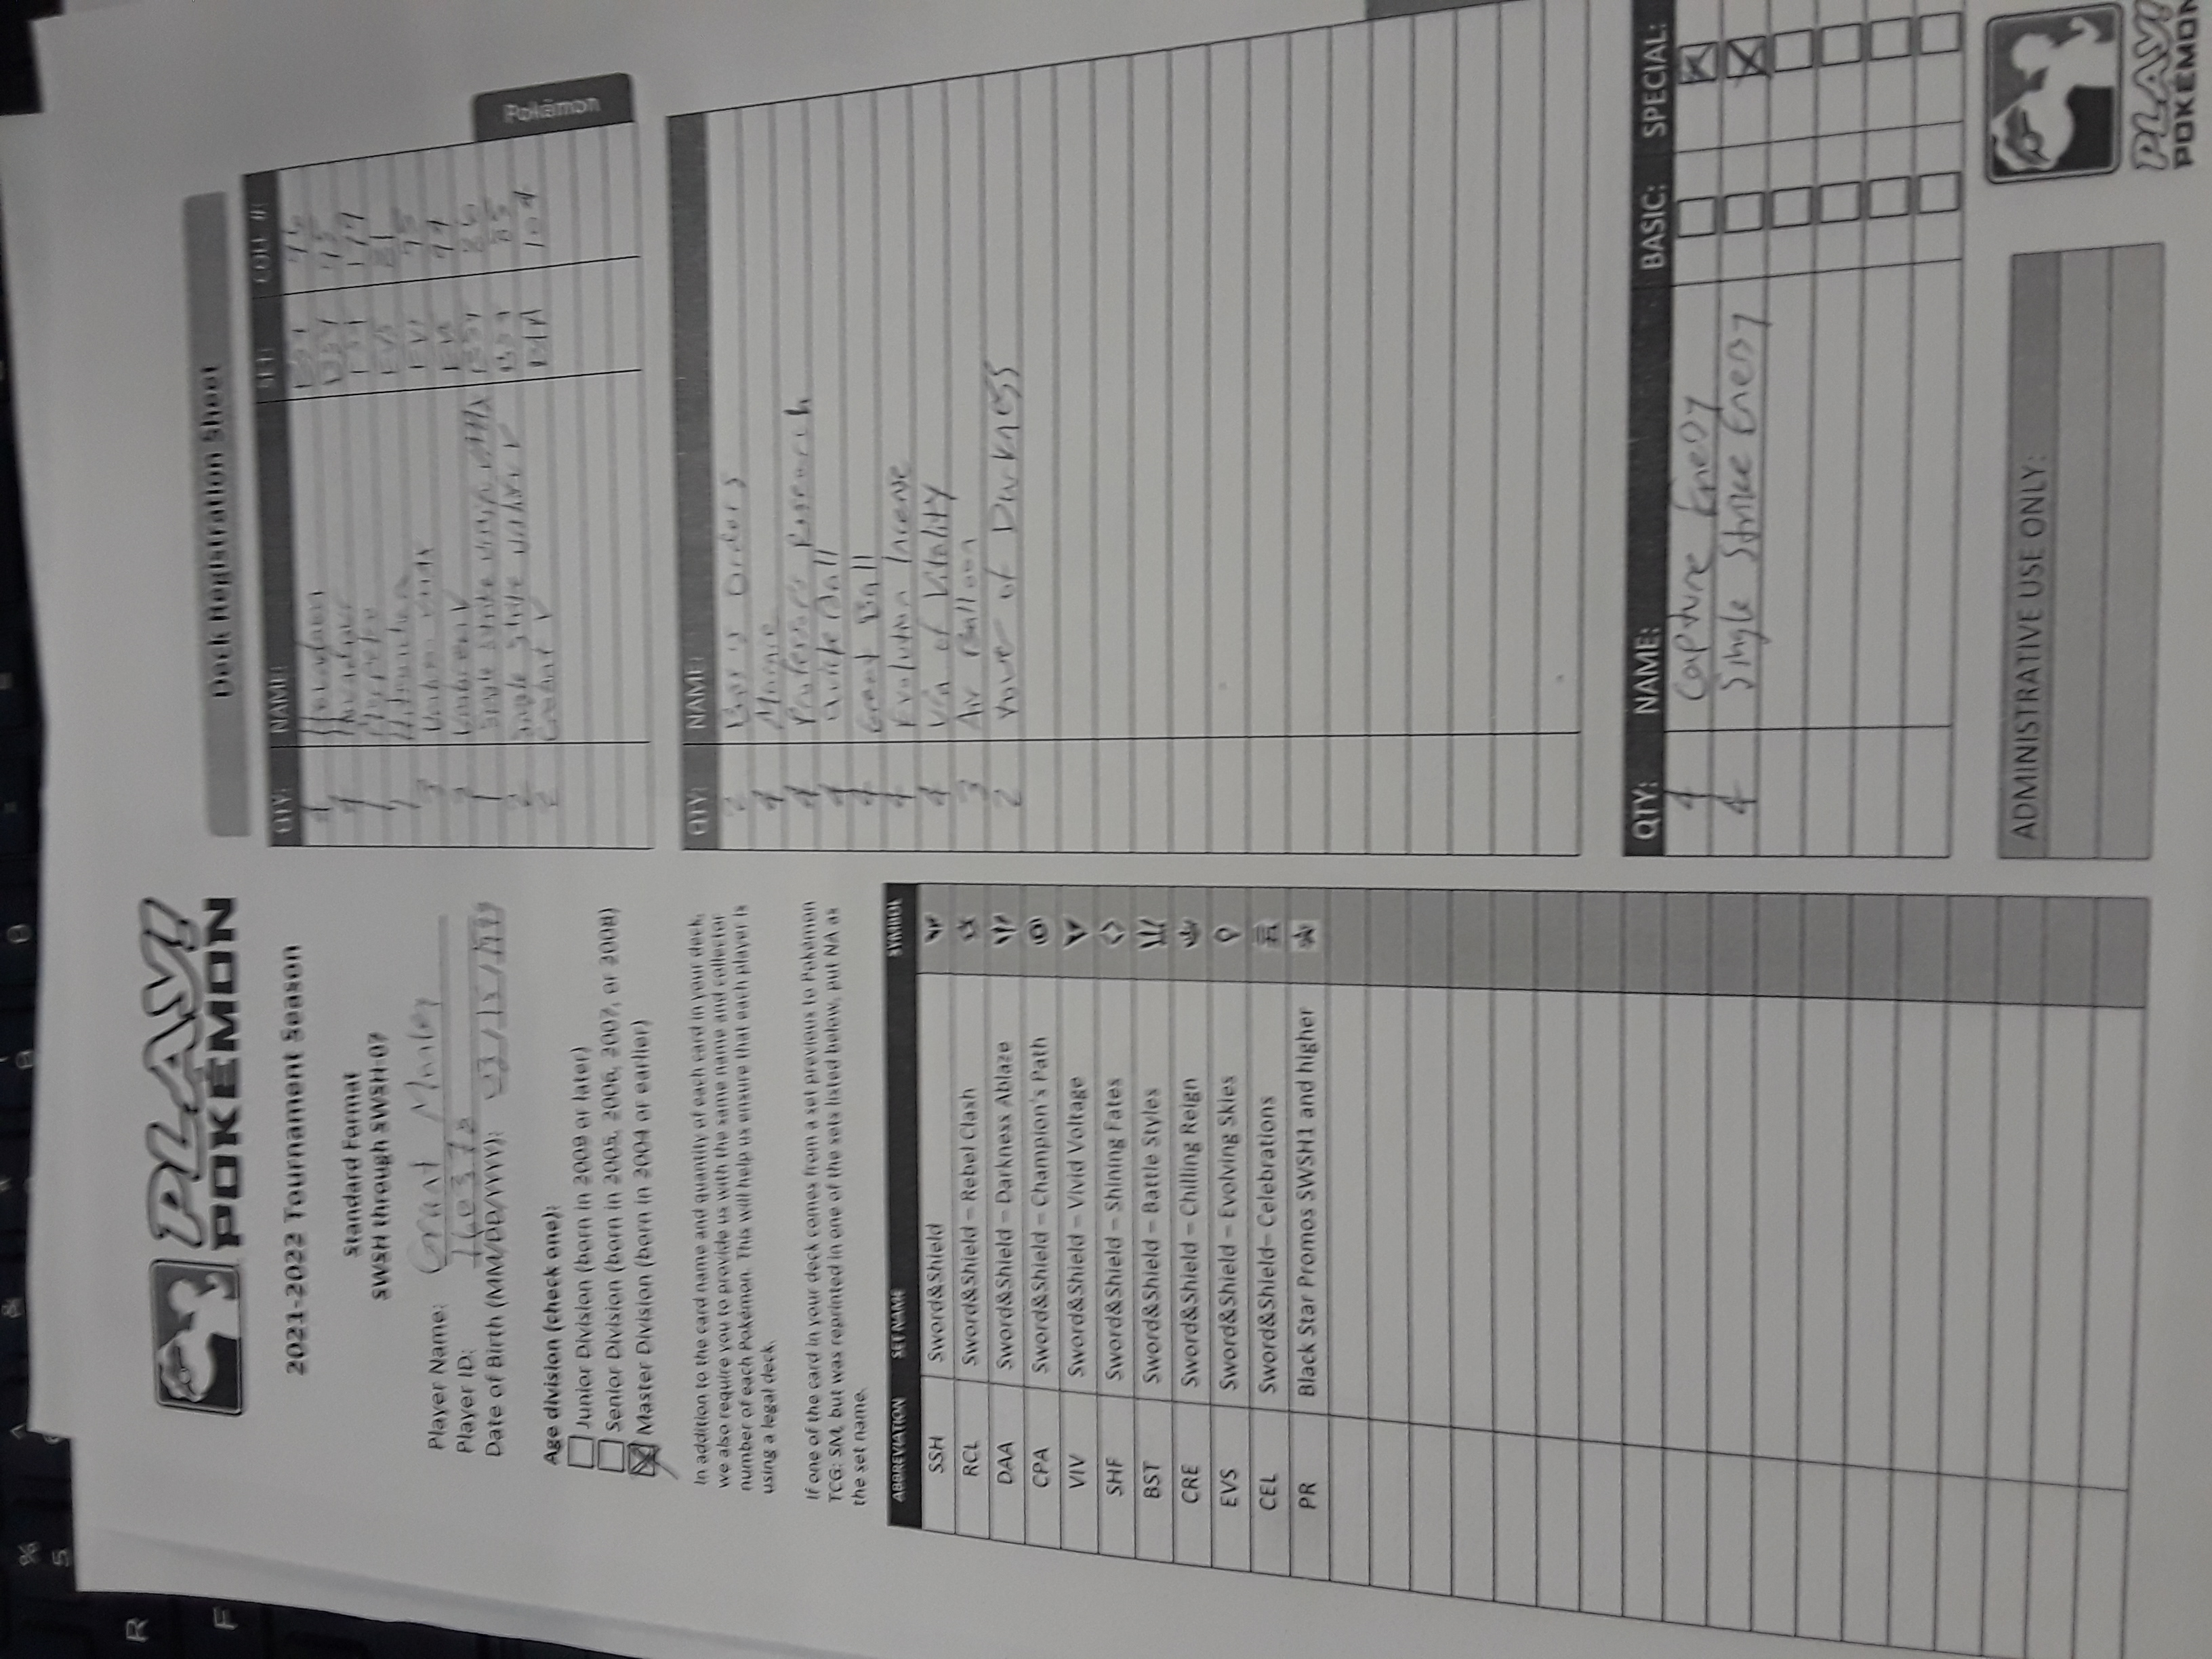 %
5
&
R
F
PLAY!
POKÉMON
2021-2022 Tournament Season
Standard Format
SWSH through SWSH-07
Player Name: Grant Manley
Player ID:
Date of Birth (MM/DD/YYYY): 03/15/1999
Age division (check one):
Junior Division (born in 2009 or later)
Senior Division (born in 2005, 2006, 2007, or 2008)
Master Division (born in 2004 or earlier)
In addition to the card name and quantity of each card in your deck,
we also require you to provide us with the same name and collector
number of each Pokémon. This will help us ensure that each player is
using a legal deck.
If one of the card in your deck comes from a set previous to Pokémon
TCG: SM, but was reprinted in one of the sets listed below, put NA as
the set name.
ABBREVIATION SET NAME SYMBOL
SSH Sword&Shield
RCL Sword&Shield – Rebel Clash
DAA Sword&Shield – Darkness Ablaze
CPA Sword&Shield – Champion's Path
VIV Sword&Shield – Vivid Voltage
SHF Sword&Shield – Shining Fates
BST Sword&Shield – Battle Styles
CRE Sword&Shield – Chilling Reign
EVS Sword&Shield – Evolving Skies
CEL Sword&Shield– Celebrations
PR Black Star Promos SWSH1 and higher
Deck Registration Sheet
QTY: NAME: SET: COLL #:
4 Houndoom BST 96
4 Houndour BST 95
1 Morpeko 179
1 Hitmonchan EVS 81
3 Umbreon VMAX EVS 95
3 Umbreon V EVS 94
1 Single Strike Urshifu VMAX BST 86
2 Single Strike Urshifu V BST 85
2 V 104
Pokémon
QTY: NAME:
2 Boss's Orders
4 Marnie
4 Professor's Research
4 Quick Ball
4 Great Ball
4 Evolution Incense
4 Urn of Vitality
3 Air Balloon
2 Tower of Darkness
QTY: NAME: BASIC: SPECIAL:
4 Capture Energy
4 Single Strike Energy
ADMINISTRATIVE USE ONLY:
PLAY!
POKÉMON